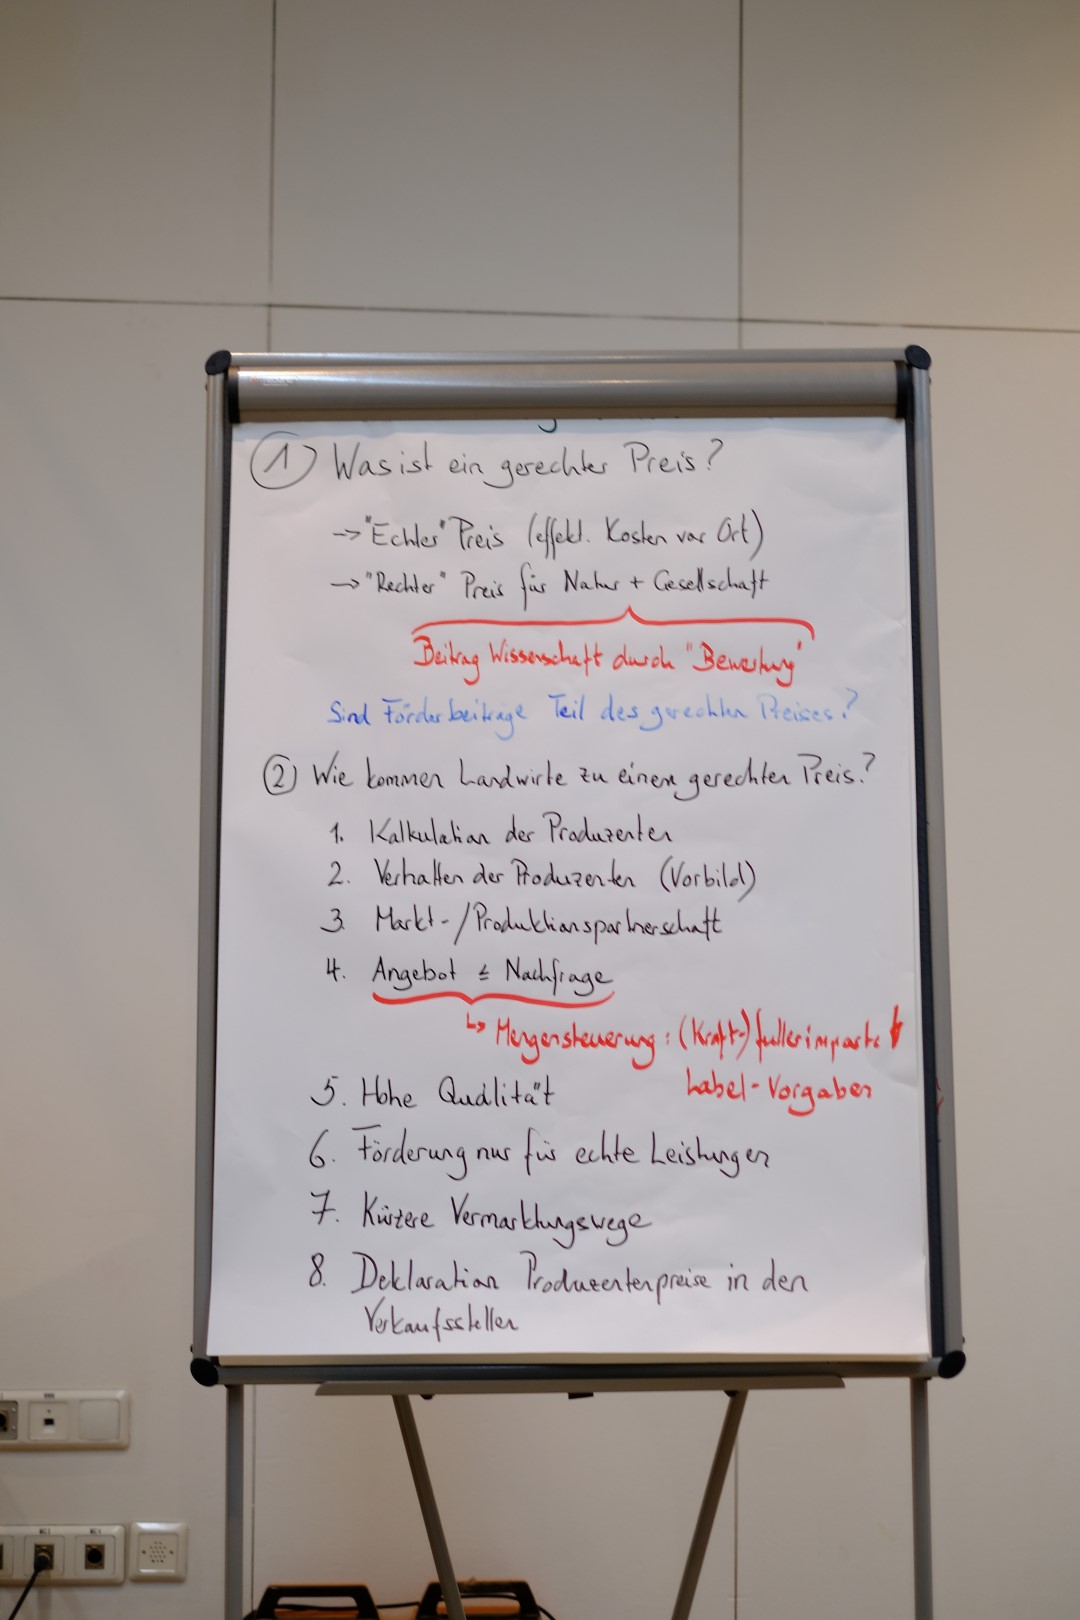 ① Was ist ein gerechter Preis?
→ "Echter" Preis (effekt. Kosten vor Ort)
→ "Rechter" Preis für Natur + Gesellschaft
Beitrag Wissenschaft durch "Bewertung"
Sind Förderbeiträge Teil des gerechten Preises?
② Wie kommen Landwirte zu einem gerechten Preis?
1. Kalkulation der Produzenten
2. Verhalten der Produzenten (Vorbild)
3. Markt-/Produktionspartnerschaft
4. Angebot ≤ Nachfrage
↳ Mengensteuerung: (Kraft-)futterimporte ↓
Label-Vorgaben
5. Hohe Qualität
6. Förderung nur für echte Leistungen
7. Kürzere Vermarktungswege
8. Deklaration Produzentenpreise in den
Verkaufsstellen